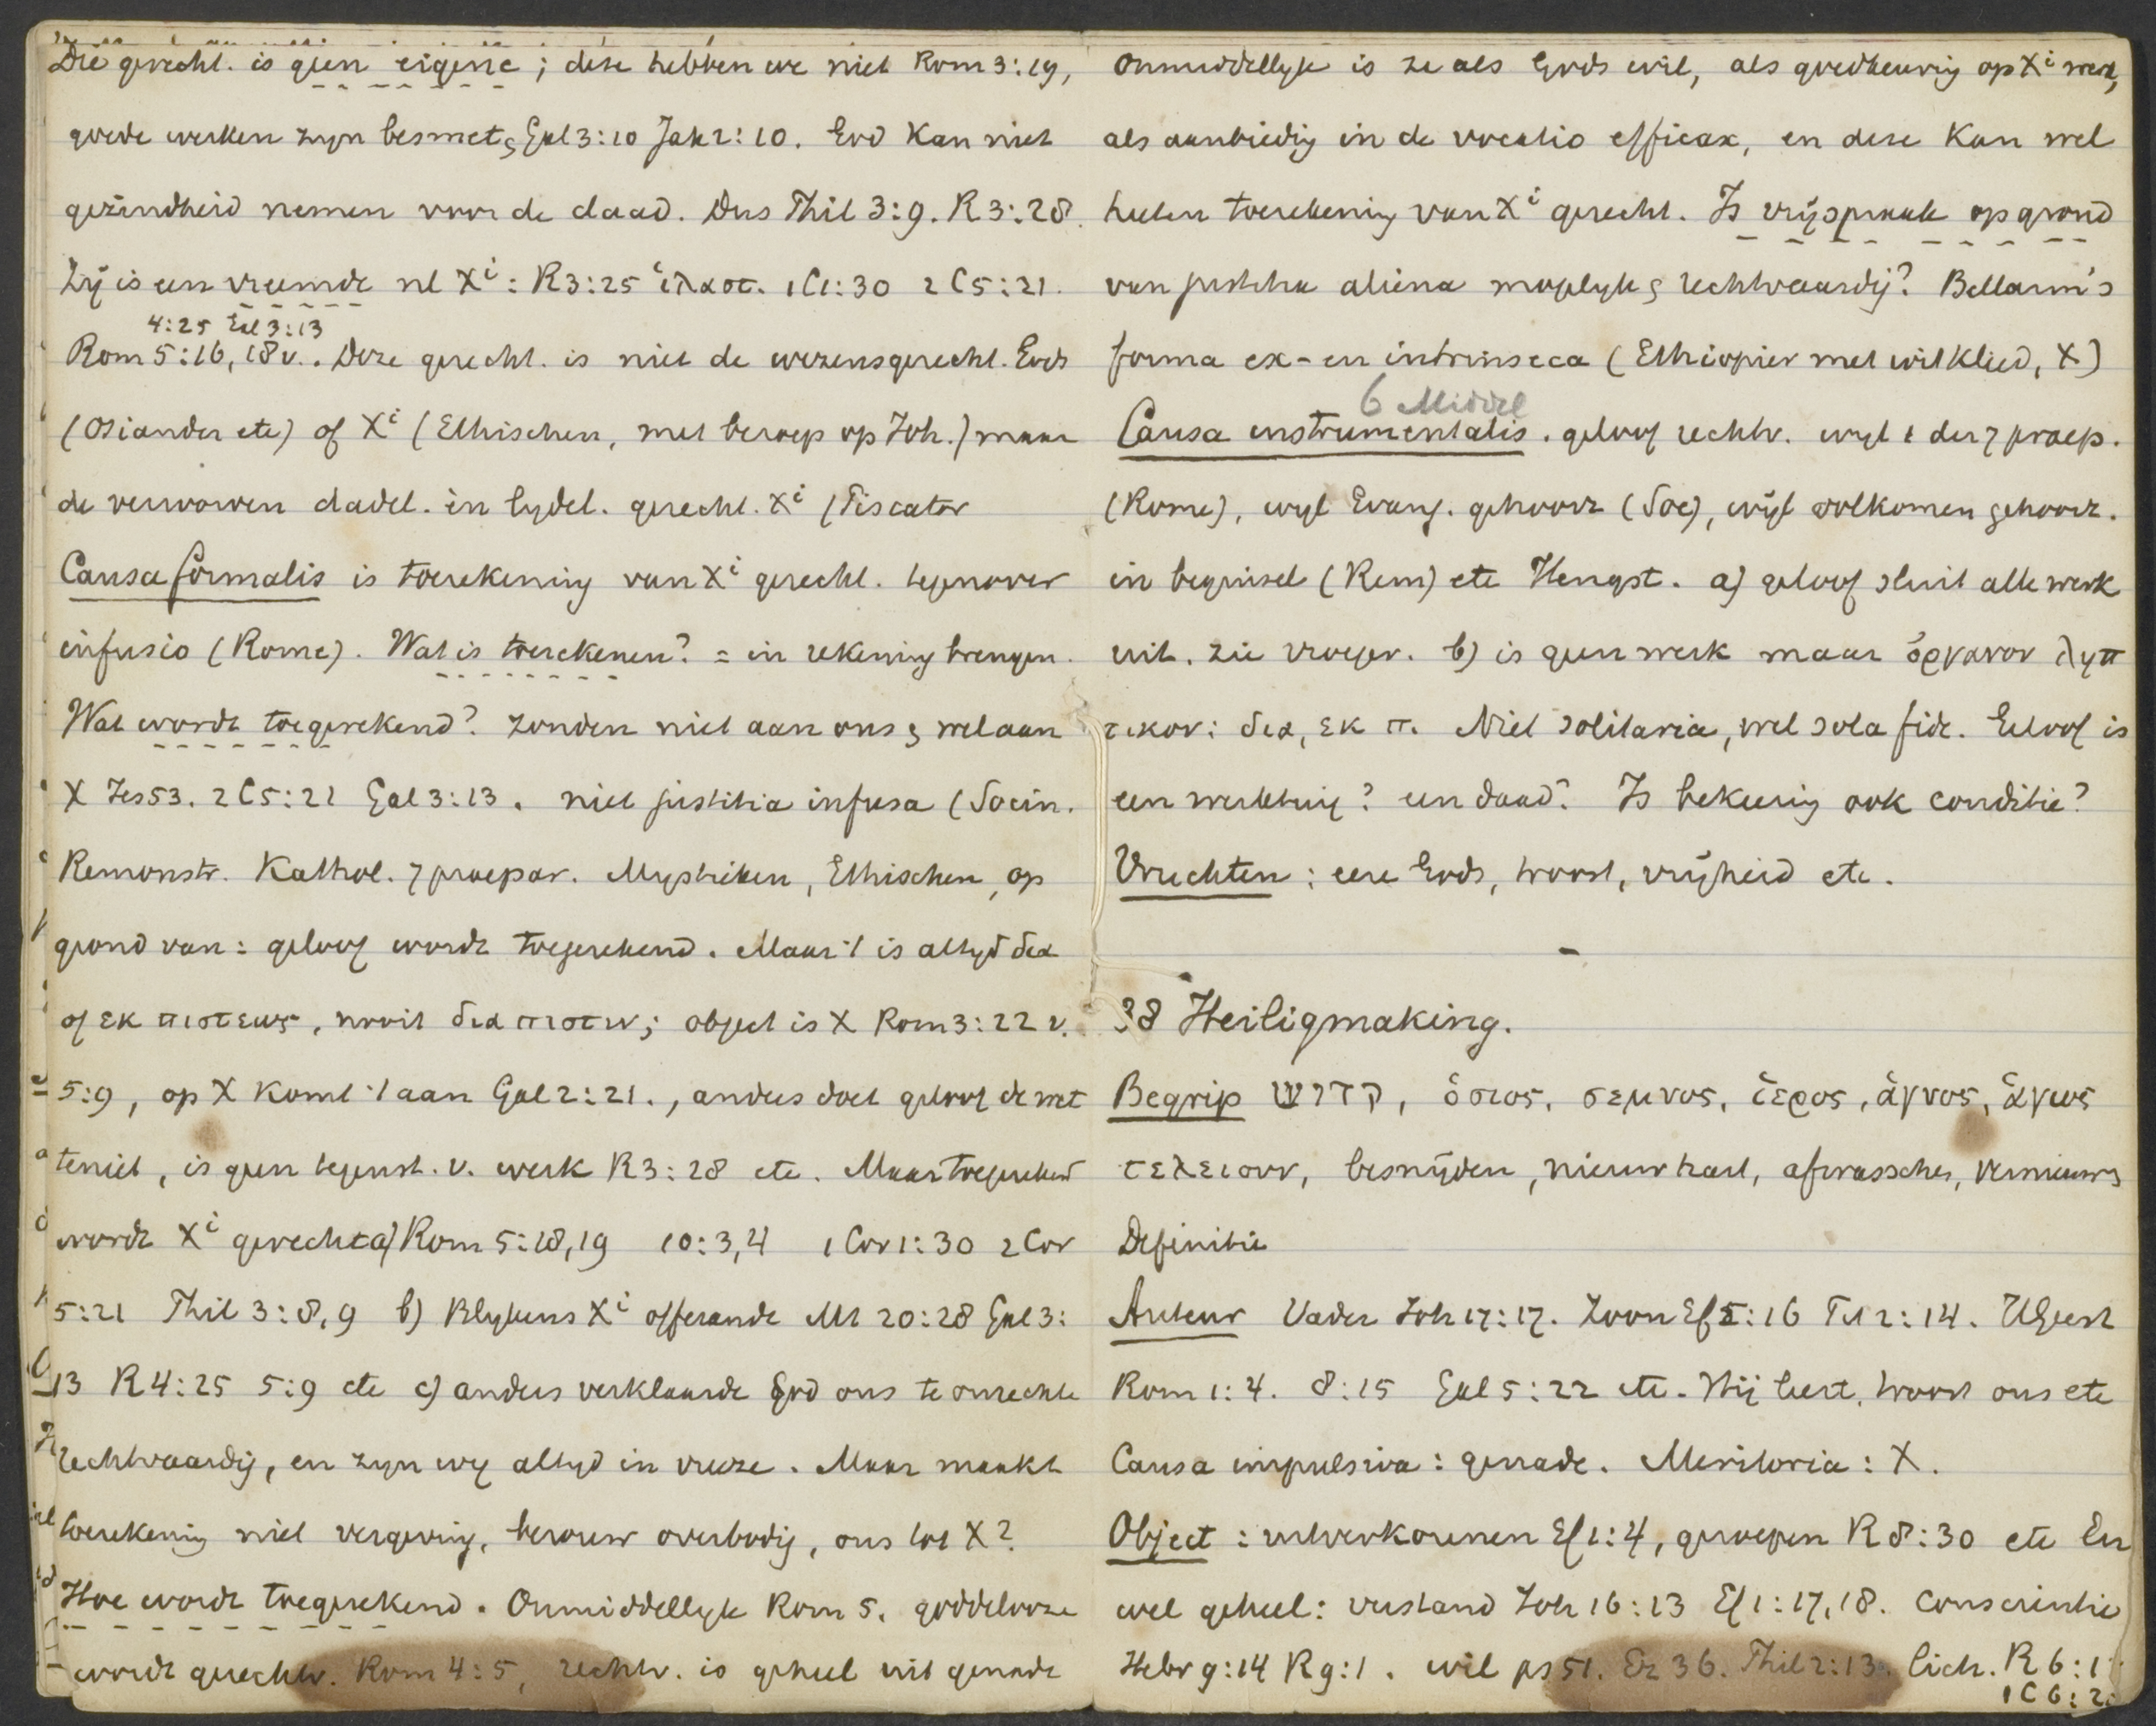 Die gerecht. is geen eigene; deze hebben we niet Rom 3:19,
goede werken zyn besmet, Gal 3:10 Jak 2:10. God kan niet
gezindheid nemen voor de daad. Dus Phil 3:9. R 3:28.
Zij is een vreemde nl Xi: R 3:25 ἱλασ. 1 C 1:30 2 C 5:21.
4:25 Gal 3:13
Rom 5:16, 18 v.. Deze gerecht. is niet de wezensgerecht. Gods
(Osiander etc) of Xi (Ethischen, met beroep op Joh.) maar
de verworven dadel. en lydel. gerecht. Xi (Piscator
Causa formalis is toerekening van Xi gerecht. tegenover
infusio (Rome). Wat is toerekenen? = in rekening brengen.
Wat wordt toegerekend? Zonden niet aan ons, wel aan
X Jes 53. 2 C 5:21 Gal 3:13. niet justitia infusa (Socin.
Remonstr. Kathol. 7 praepar. Mystieken, Ethischen, op
grond van: geloof wordt toegerekend. Maar 't is altyd δια
of εκ πιστεως, nooit δια πιστιν; object is X Rom 3:22 v.
5:9, op X komt 't aan Gal 2:21., anders doet geloof de wet
teniet, is geen tegenst. v. werk R 3:28 etc. Maar toegerekend
wordt Xi gerecht a) Rom 5:18,19 10:3,4 1 Cor 1:30 2 Cor
5:21 Phil 3:8,9 b) Blykens Xi offerande Mt 20:28 Gal 3:
13 R 4:25 5:9 etc c) anders verklaarde God ons te onrechte
rechtvaardig, en zyn wy altyd in vreeze. Maar maakt
toerekening niet vergeving, berouw overbodig, ons tot X?
Hoe wordt toegerekend. Onmiddellyk Rom 5. goddelooze
wordt gerechtv. Rom 4:5, rechtv. is geheel uit genade
Onmiddellyk is ze als Gods wil, als goedkeuring op Xi werk,
als aanbieding in de vocatio efficax, en deze kan wel
heeten toerekening van Xi gerecht. Is vrijspraak op grond
van justitia aliena mogelyk, rechtvaardig? Bellarm's
forma ex- en intrinseca (Ethiopier met wit kleed, X)
6 Middel
Causa instrumentalis. geloof rechtv. wyl 1 der 7 praep.
(Rome), wyl Evang. gehoorz (Soc), wijl volkomen gehoorz.
in beginsel (Rem) etc Hengst. a) geloof sluit alle werk
uit. zie vroeger. b) is geen werk maar ὀργανον ληπ
τικον: δια, εκ π. Niet solitaria, wel sola fide. Geloof is
een werktuig? een daad? Is bekeering ook conditie?
Vruchten: eere Gods, troost, vrijheid etc.
–
38 Heiligmaking.
Begrip קדוש, ὁσιος, σεμνος, ἱερος, ἁγνος, ἁγιος
τελειουν, besnijden, nieuw hart, afwasschen, vernieuwg
Definitie
Auteur Vader Joh 17:17. Zoon Ef 5:16 Tit 2:14. HGeest
Rom 1:4. 8:15 Gal 5:22 etc. Hij leert, troost ons etc
Causa impulsiva: genade. Meritoria: X.
Object: uitverkorenen Ef 1:4, geroepen R 8:30 etc En
wel geheel: verstand Joh 16:13 Ef 1:17,18. Conscientie
Hebr 9:14 R 9:1. wil ps 51. Ez 36. Phil 2:13. lich. R 6:1
1 C 6:2